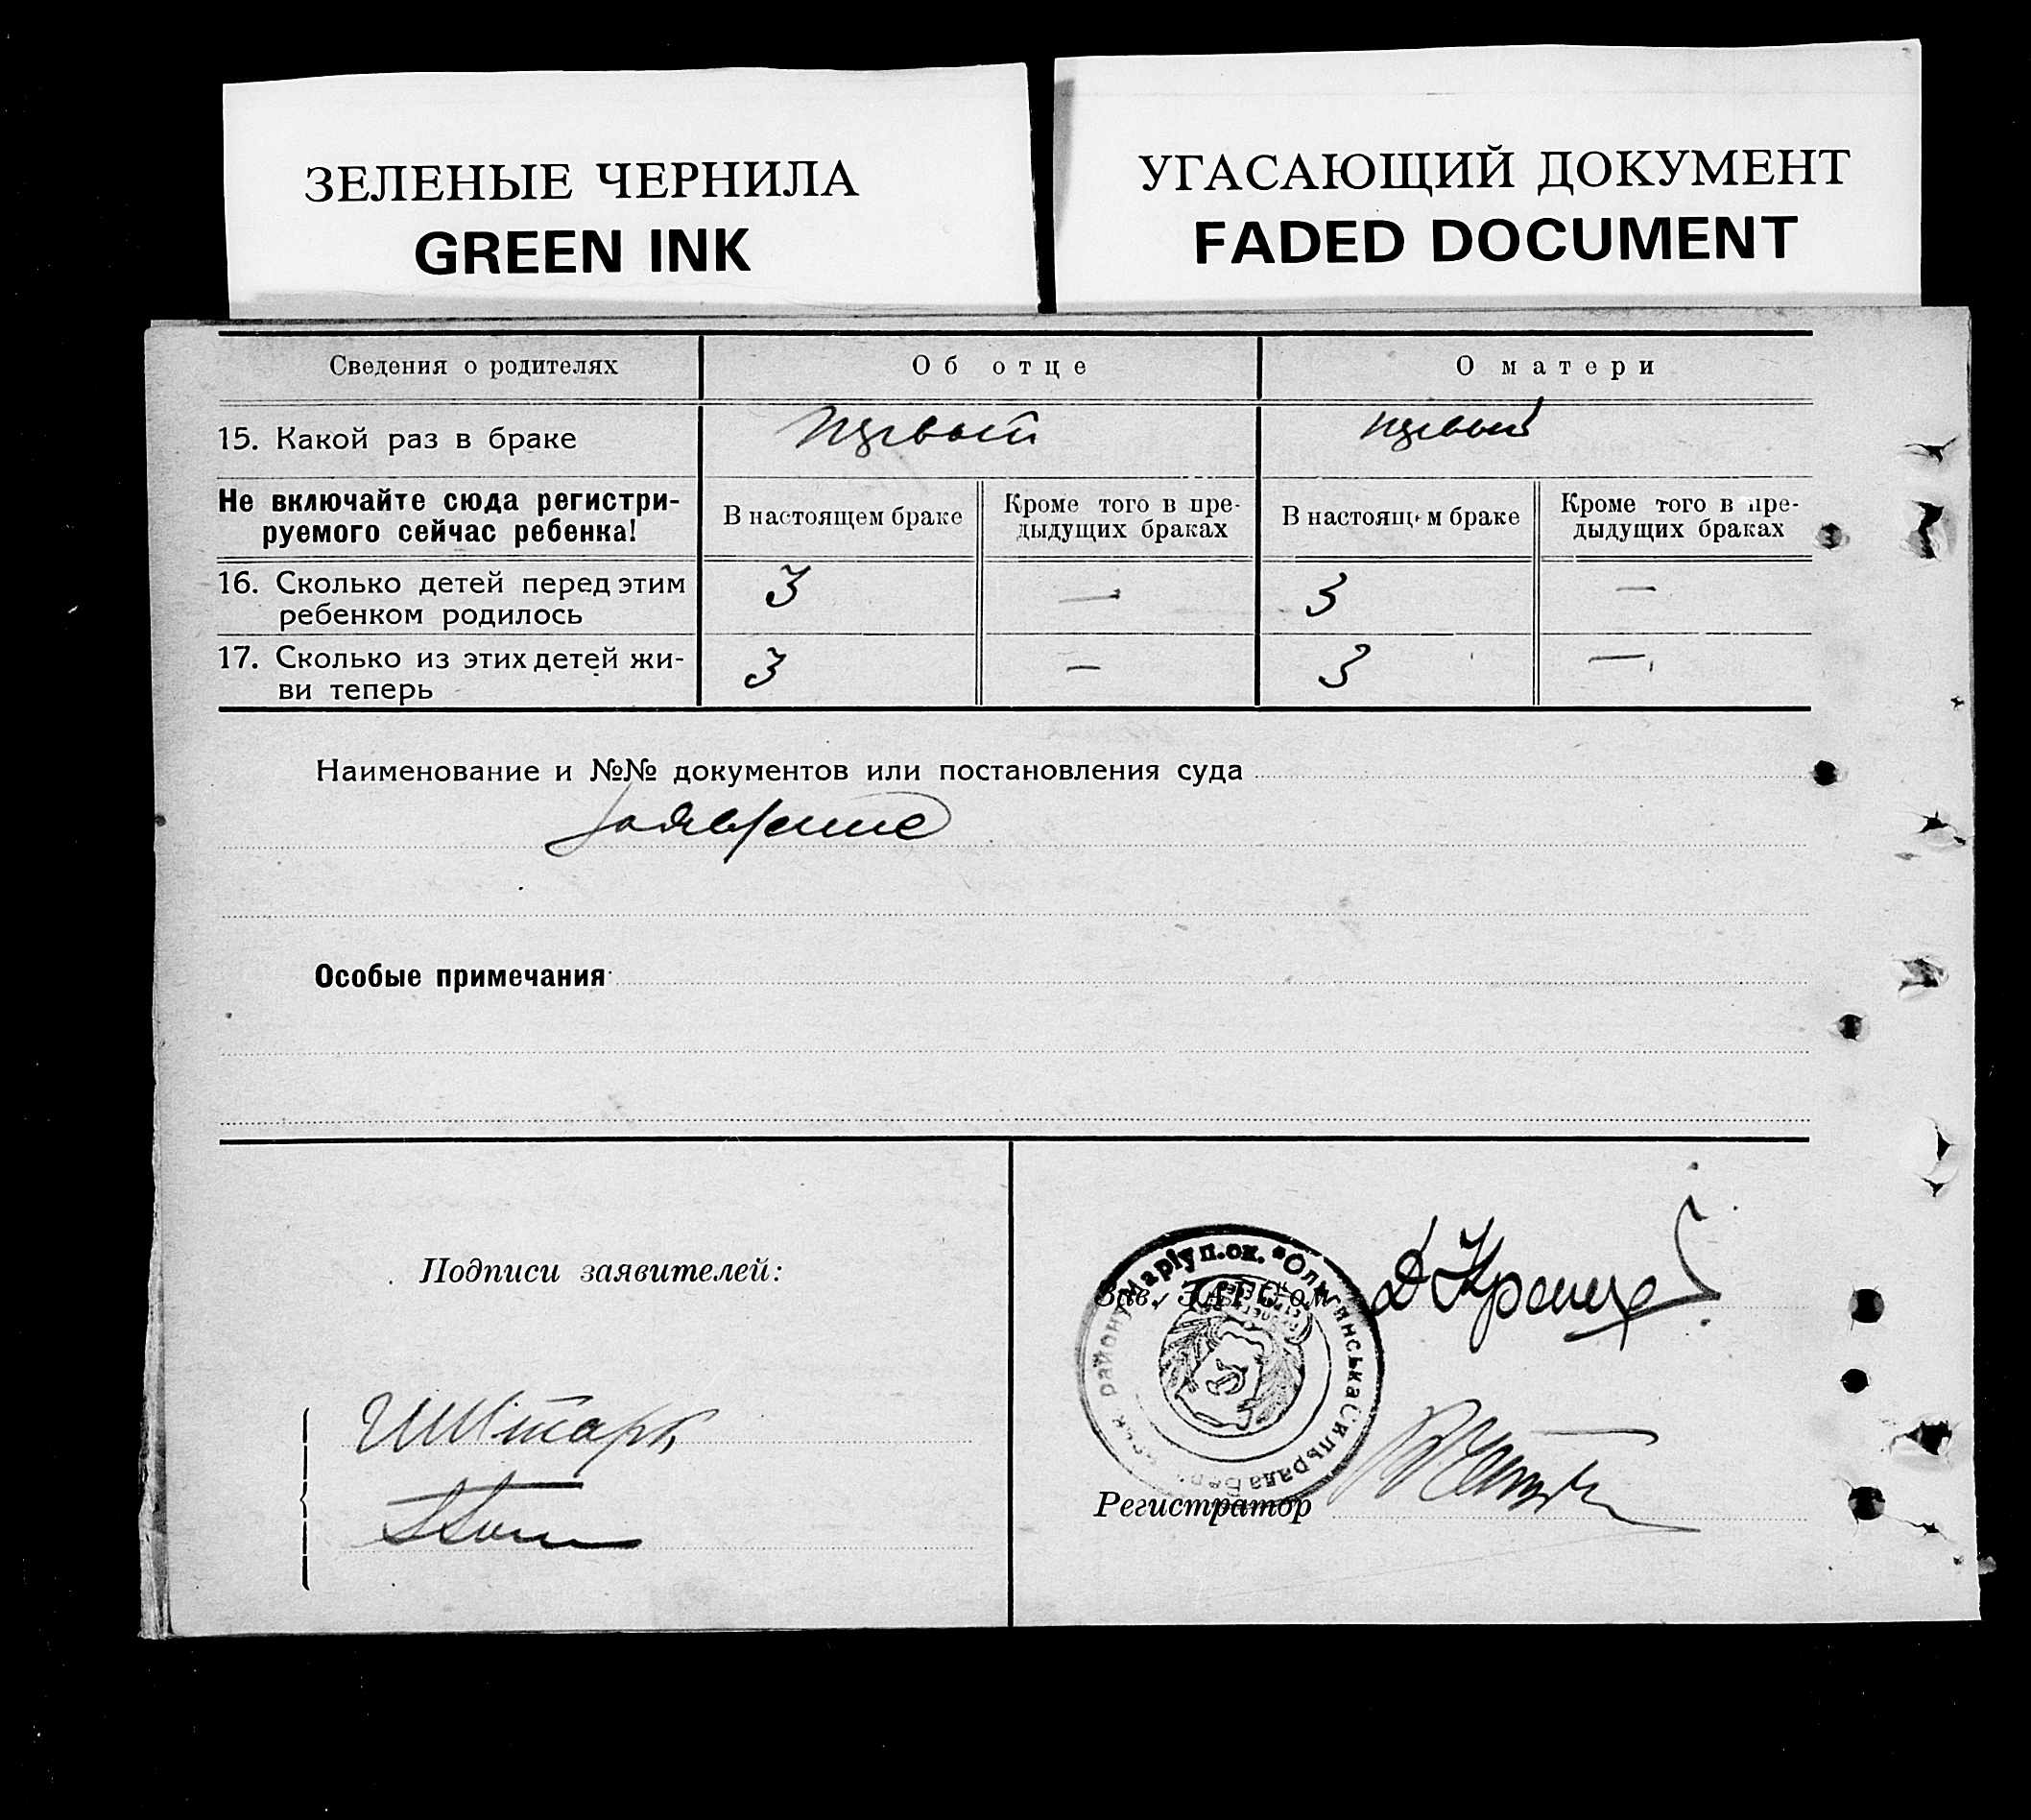 ЗЕЛЕНЫЕ ЧЕРНИЛА
GREEN INK
УГАСАЮЩИЙ ДОКУМЕНТ
FADED DOCUMENT
Сведения о родителях Об отце О матери
15. Какой раз в браке первый первый
Не включайте сюда регистри-
руемого сейчас ребенка!
В настоящем браке
Кроме того в пре-
дыдущих браках
В настоящем браке
Кроме того в пре-
дыдущих браках
16. Сколько детей перед этим
ребенком родилось
3 — 3 —
17. Сколько из этих детей жи-
ви теперь
3 — 3 —
Наименование и №№ документов или постановления суда
заявление
Особые примечания
Подписи заявителей:
Зав. ЗАГС'ом
Маріуп.ок. *Ольгинська Сільрада
району
Регистратор